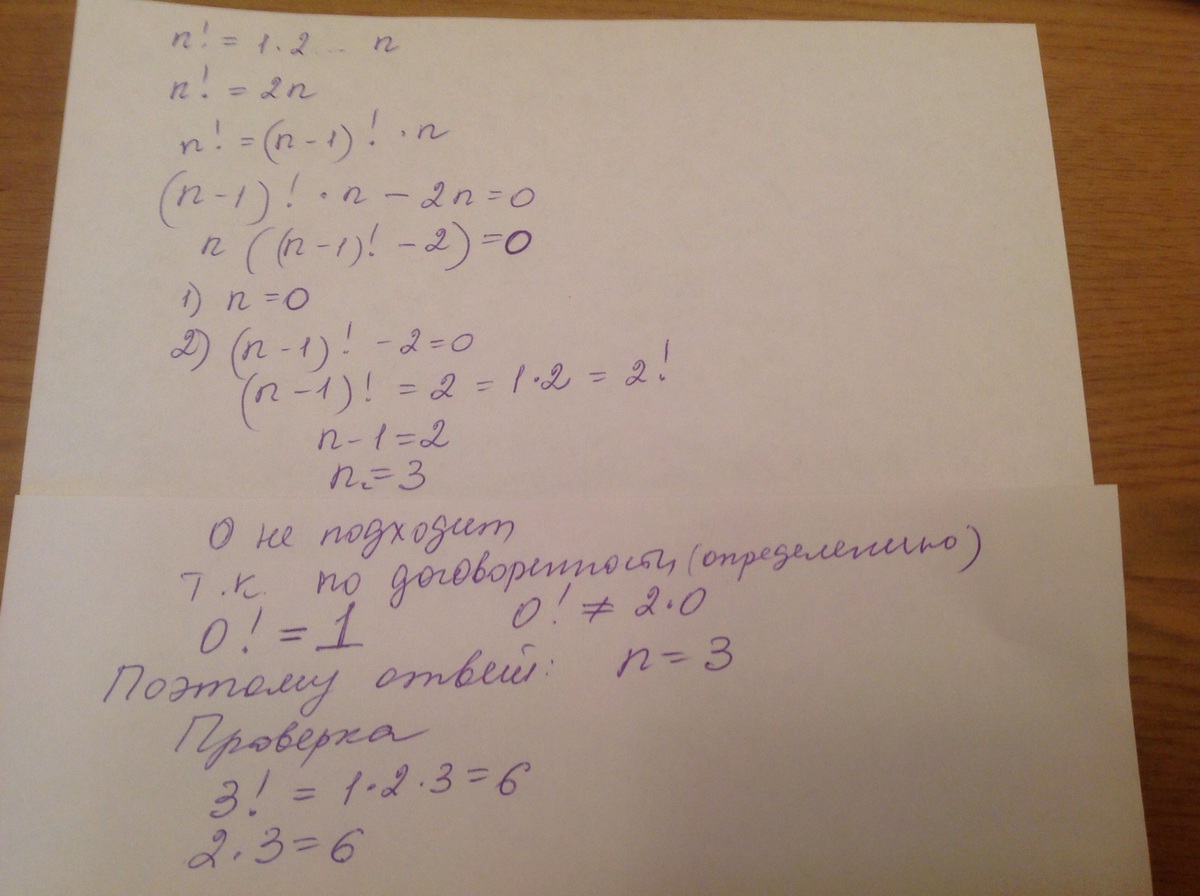 n! = 1·2 ... n
n! = 2n
n! = (n-1)! · n
(n-1)! · n - 2n = 0
n ((n-1)! - 2) = 0
1) n = 0
2) (n-1)! - 2 = 0
(n-1)! = 2 = 1·2 = 2!
n-1 = 2
n = 3
0 не подходит
т.к. по договоренности (определению)
0! = 1 0! ≠ 2·0
Поэтому ответ: n = 3
Проверка
3! = 1·2·3 = 6
2·3 = 6